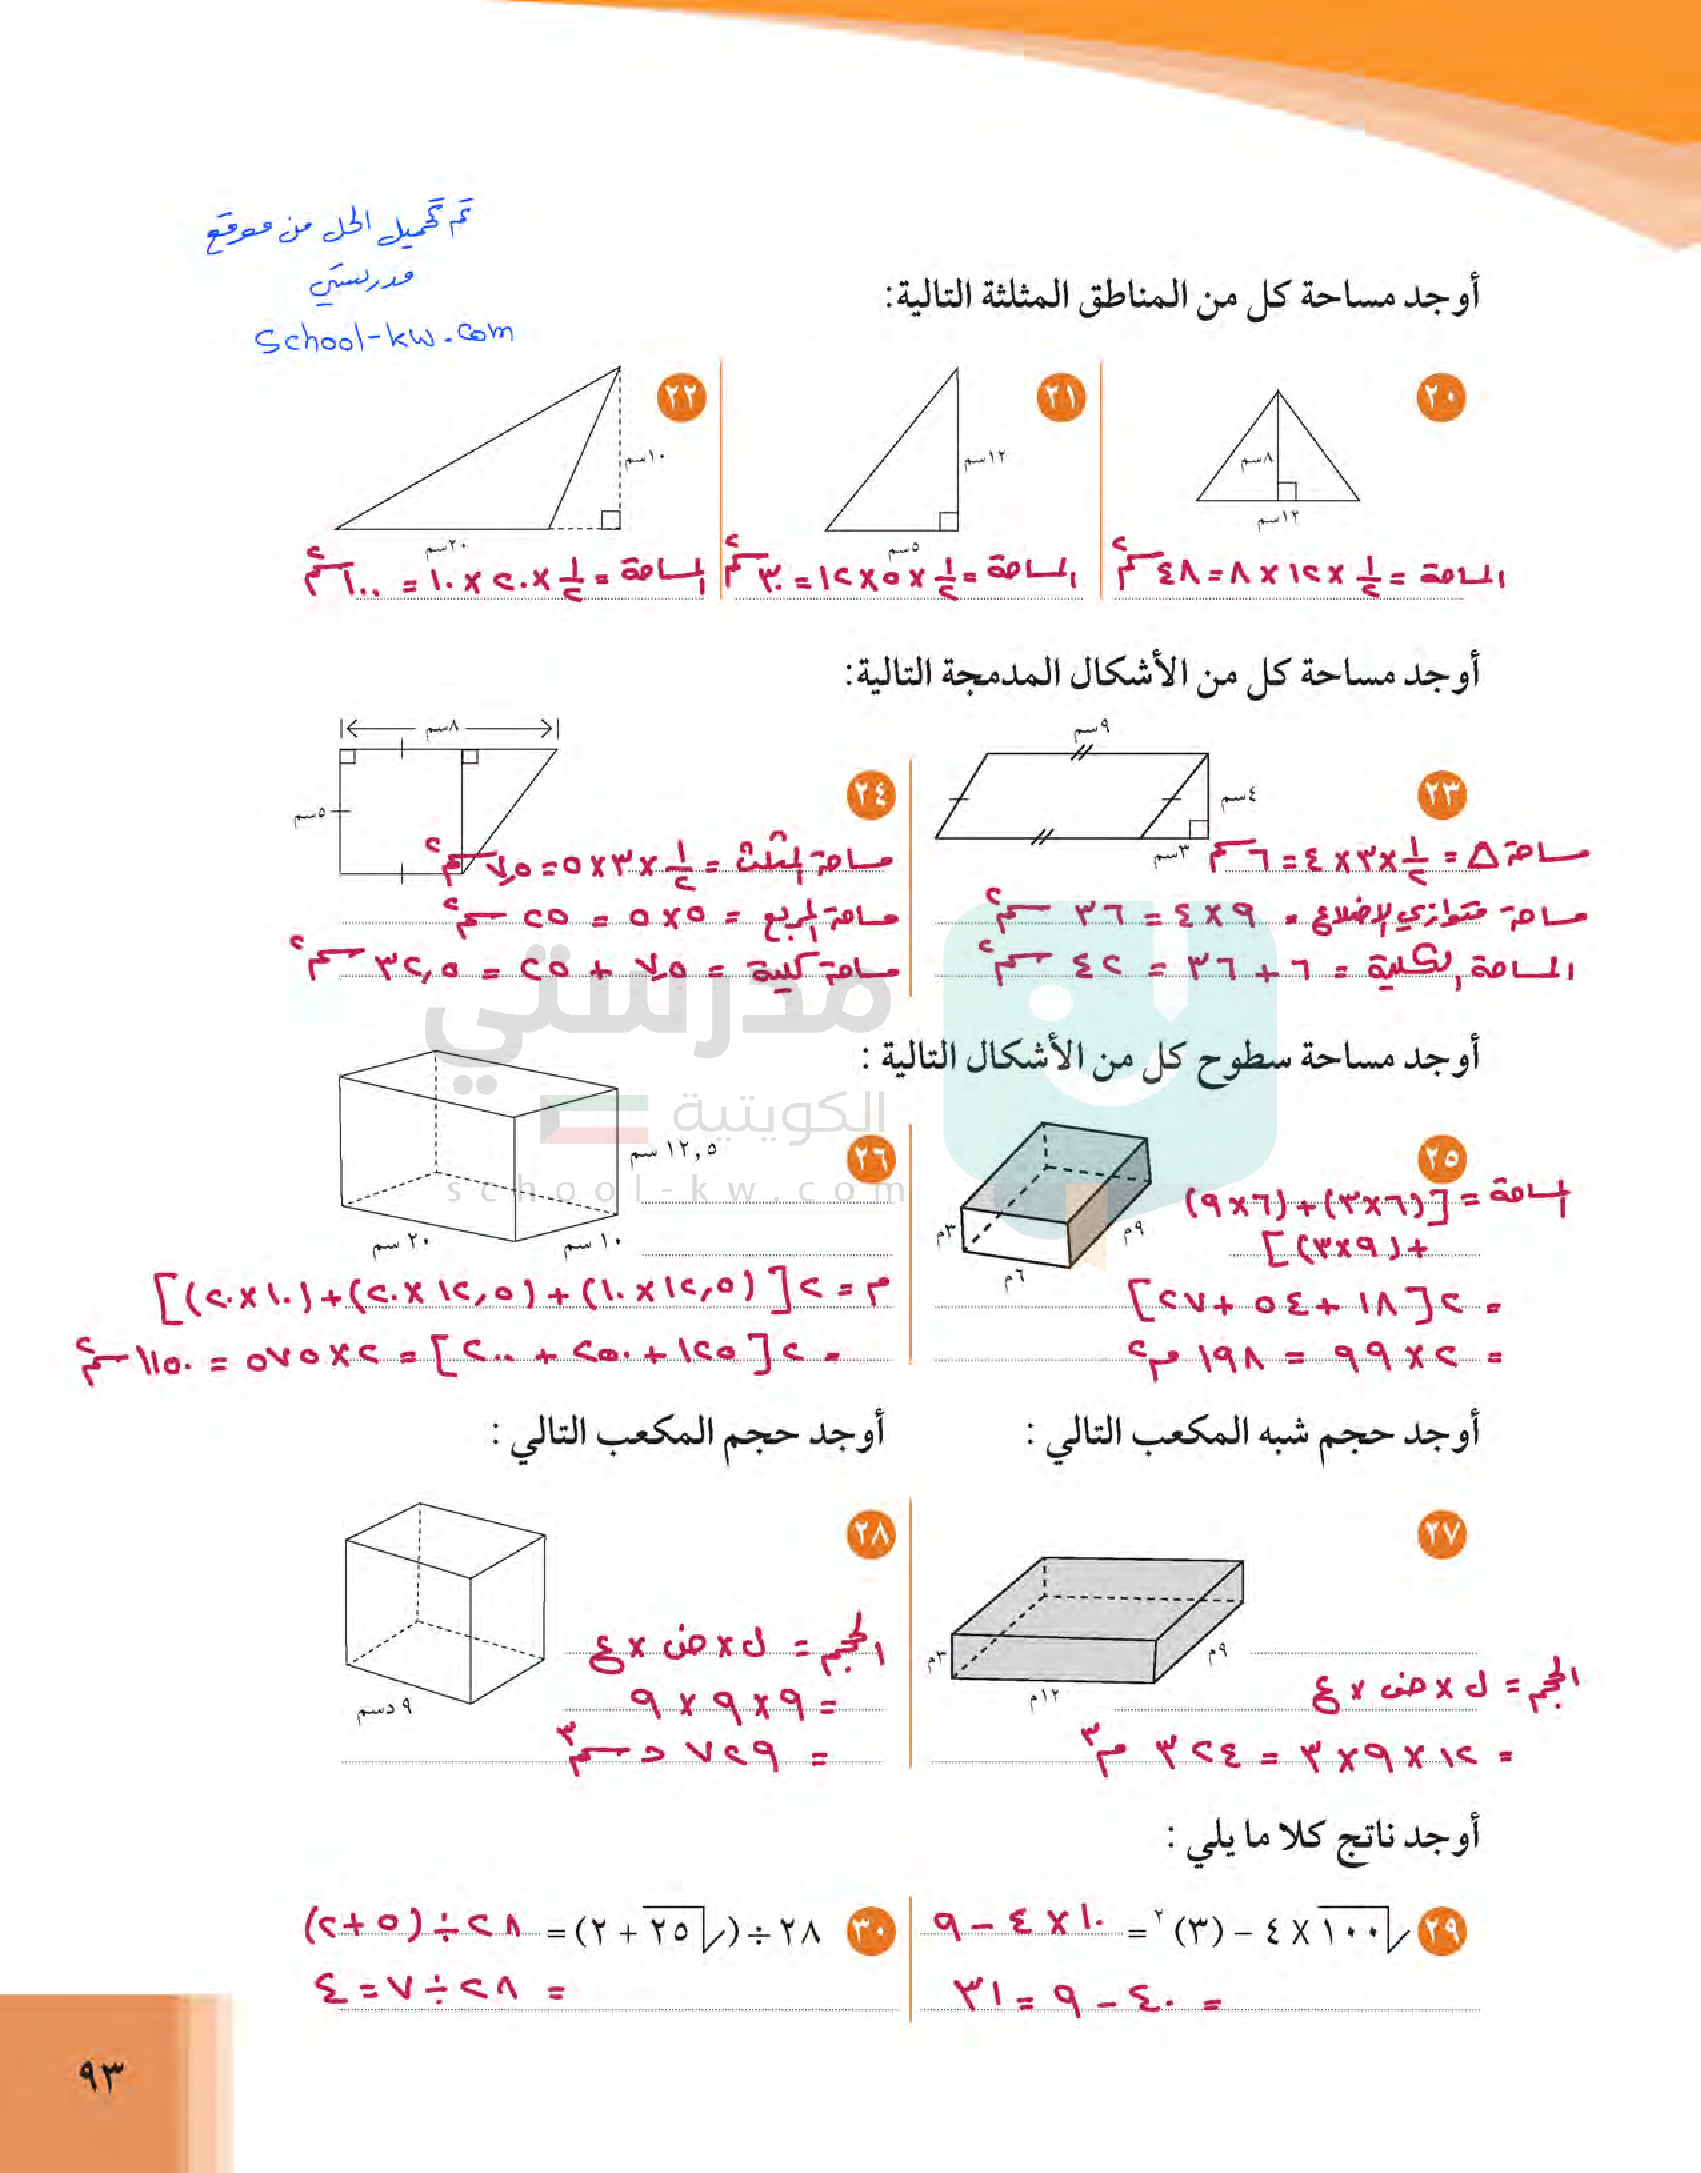 تم تكميل الحل من موقع
مدرستي
School-kw.com
أوجد مساحة كل من المناطق المثلثة التالية:
٢٠
٨سم
١٢سم
المساحة = ١/٢ × ١٢ × ٨ = ٤٨ سم٢
٢١
١٢سم
٥سم
المساحة = ١/٢ × ٥ × ١٢ = ٣٠ سم٢
٢٢
١٠سم
٢٠سم
المساحة = ١/٢ × ٢٠ × ١٠ = ١٠٠ سم٢
أوجد مساحة كل من الأشكال المدمجة التالية:
٢٣
٩سم
٤سم
٣سم
مساحة △ = ١/٢ × ٣ × ٤ = ٦ سم٢
مساحة متوازي الاضلاع = ٩ × ٤ = ٣٦ سم٢
المساحة الكلية = ٦ + ٣٦ = ٤٢ سم٢
٢٤
٨سم
٥سم
مساحة المثلث = ١/٢ × ٣ × ٥ = ٧,٥ سم٢
مساحة المربع = ٥ × ٥ = ٢٥ سم٢
مساحة كلية = ٧,٥ + ٢٥ = ٣٢,٥ سم٢
مدرستي
الكويتية
school-kw.com
أوجد مساحة سطوح كل من الأشكال التالية :
٢٥
٣م
٩م
٦م
المساحة = ](٦×٣)+(٦×٩)
+(٩×٣)[
= ٢ [١٨ + ٥٤ + ٢٧]
= ٢ × ٩٩ = ١٩٨ م٢
٢٦
١٢,٥ سم
١٠ سم
٢٠ سم
م = ٢ [(١٢,٥ × ١٠) + (١٢,٥ × ٢٠) + (١٠ × ٢٠)]
= ٢ [١٢٥ + ٢٥٠ + ٢٠٠] = ٢ × ٥٧٥ = ١١٥٠ سم٢
أوجد حجم شبه المكعب التالي :
٢٧
٣م
٩م
١٢م
الحجم = ل × ض × ع
= ١٢ × ٩ × ٣ = ٣٢٤ م٣
أوجد حجم المكعب التالي :
٢٨
٩ دسم
الحجم = ل × ض × ع
= ٩ × ٩ × ٩
= ٧٢٩ دسم٣
أوجد ناتج كلا ما يلي :
٢٩
√١٠٠ × ٤ – (٣)٢ = ١٠ × ٤ – ٩
= ٤٠ – ٩ = ٣١
٣٠
٢٨ ÷ (√٢٥ + ٢) = ٢٨ ÷ (٥ + ٢)
= ٢٨ ÷ ٧ = ٤
٩٣